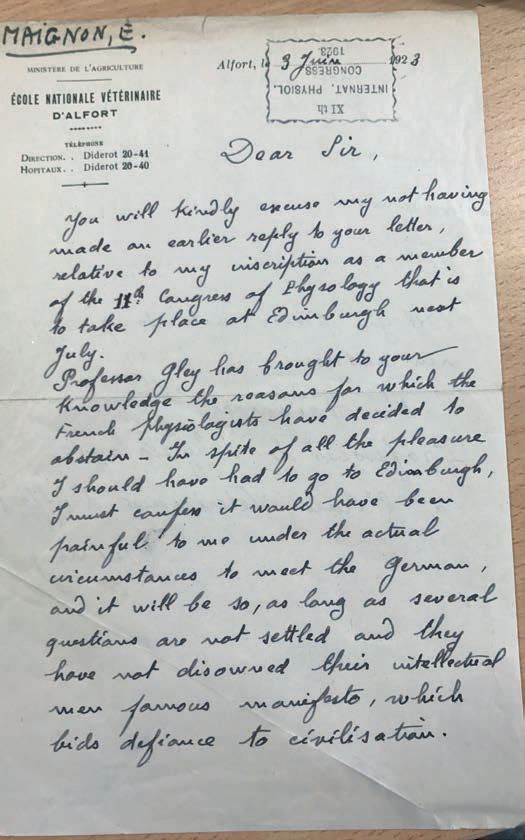 MAIGNON, E.
MINISTÈRE DE L'AGRICULTURE
ÉCOLE NATIONALE VÉTÉRINAIRE
D'ALFORT
TÉLÉPHONE
DIRECTION. . Diderot 20-41
HOPITAUX. . Diderot 20-40
Alfort, le 3 Juin 1923
XI th
INTERNAT. PHYSIOL.
CONGRESS
1923
Dear Sir,
You will kindly excuse my not having
made an earlier reply to your letter,
relative to my inscription as a member
of the 11th Congress of Physology that is
to take place at Edimburgh next
July.
Professor Gley has brought to your
Knowledge the reasons for which the
French physiologists have decided to
abstain – In spite of all the pleasure
I should have had to go to Edimburgh,
I must confess it would have been
painful to me under the actual
circumstances to meet the German,
and it will be so, as long as several
questions are not settled and they
have not disowned their intellectual
men famous manifesto, which
bids defiance to civilisation.